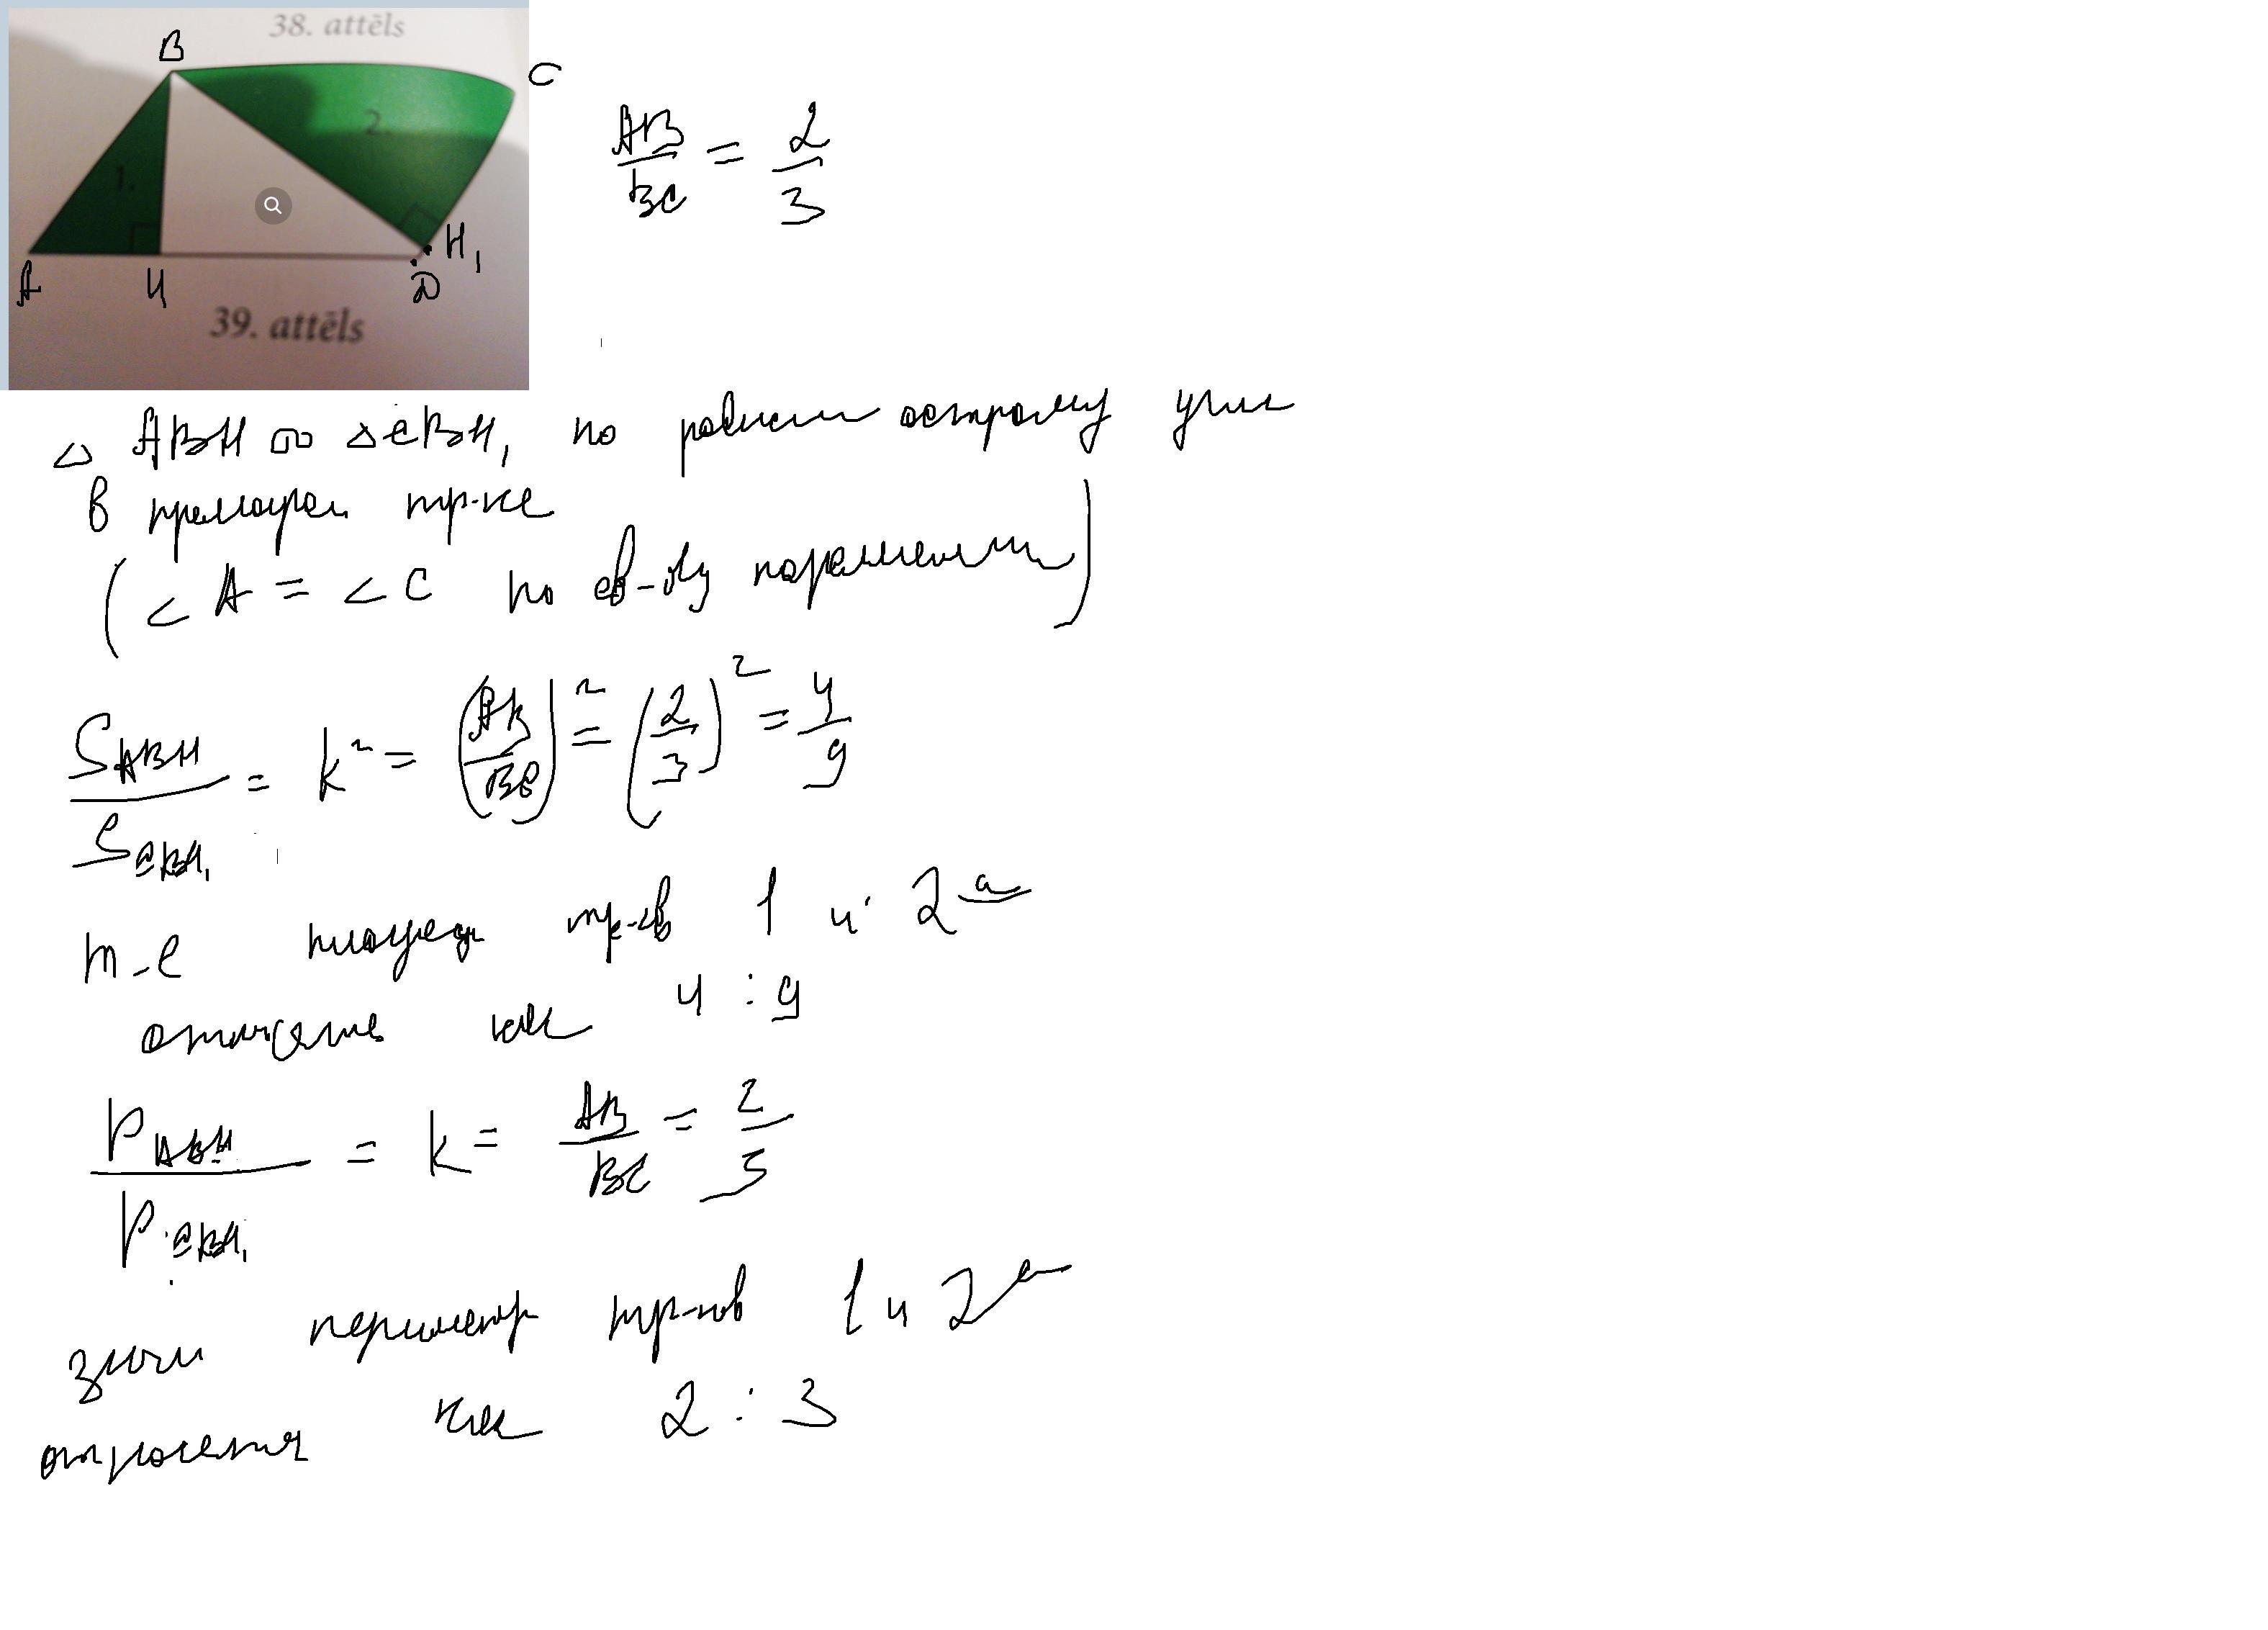 38. attēls
B
C
2.
1.
A
H
D
H₁
39. attēls
AB/BC = 2/3
△ ABH ∞ △CBH₁ по равном острому угле
в прямоугол тр-ке
(∠A = ∠C по св-ву параллелограм)
S_ABH/S_CBH₁ = k² = (AB/BC)² = (2/3)² = 4/9
т-е площади тр-ов 1 и 2
относятся как 4 : 9
P_ABH/P_CBH₁ = k = AB/BC = 2/3
значи периметр тр-ков 1 и 2
относятся как 2 : 3